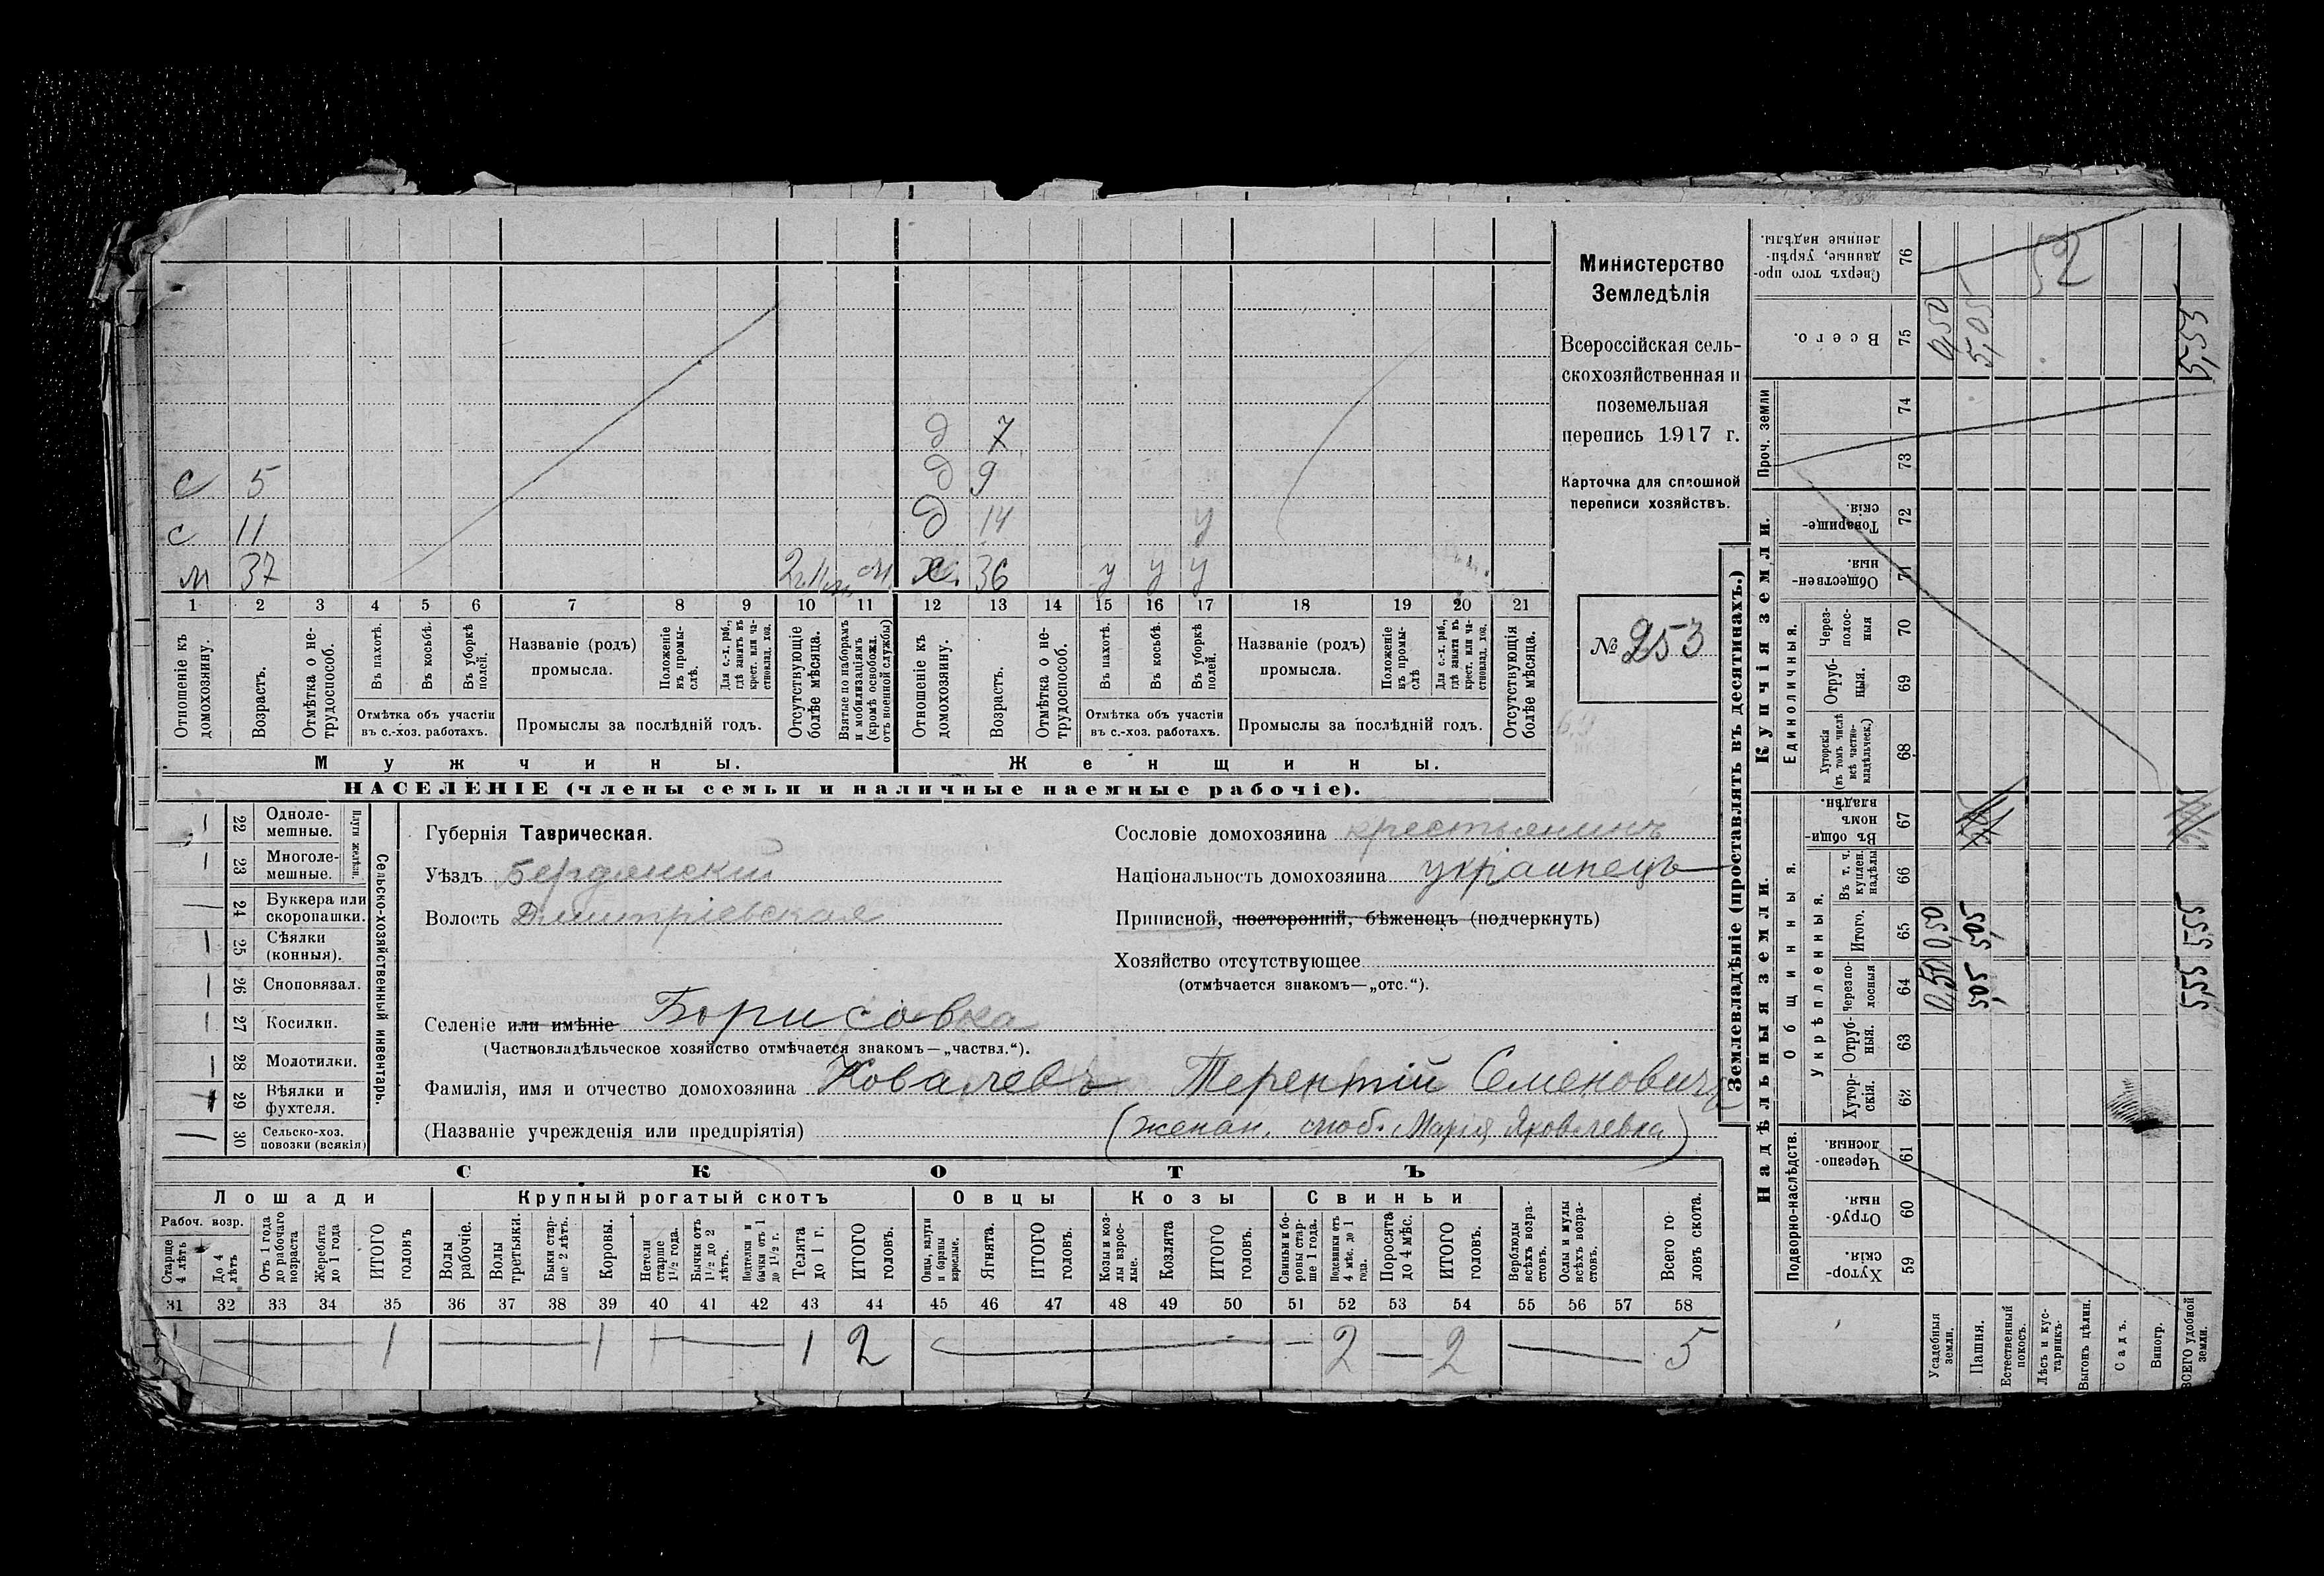 Министерство
Земледѣлія
Всероссійская сель-
скохозяйственная и
поземельная
перепись 1917 г.
Карточка для сплошной
переписи хозяйствъ.
№ 253
д 7
с 5 д 9
с 11 д 14 у
м 37 ж. 36 у у у
1 2 3 4 5 6 7 8 9 10 11 12 13 14 15 16 17 18 19 20 21
Отношеніе къ домохозяину.
Возрастъ.
Отмѣтка о не-трудоспособ.
Въ пахотѣ.
Въ косьбѣ.
Въ уборкѣ полей.
Отмѣтка объ участіи
въ с.-хоз. работахъ.
Названіе (родъ)
промысла.
Положеніе въ промы-слѣ.
Для с.-х. раб., гдѣ занятъ въ крест. или ча-стновлад. хоз.
Промыслы за послѣдній годъ.
Отсутствующіе болѣе мѣсяца.
Взятые по наборамъ и мобилизаціямъ (кромѣ освобожд. отъ военной службы)
Отношеніе къ домохозяину.
Возрастъ.
Отмѣтка о не-трудоспособ.
Въ пахотѣ.
Въ косьбѣ.
Въ уборкѣ полей.
Отмѣтка объ участіи
въ с.-хоз. работахъ.
Названіе (родъ)
промысла.
Положеніе въ промы-слѣ
Для с.-х. раб., гдѣ занята въ крест. или ча-стновлад. хоз.
Промыслы за послѣдній годъ.
Отсутствующія болѣе мѣсяца.
Мужчины.
Женщины.
НАСЕЛЕНІЕ (члены семьи и наличные наемные рабочіе).
22 Одноле-мешные.
23 Многоле-мешные.
Плуги желѣзн.
24 Буккера или скоропашки.
25 Сѣялки (конныя).
26 Сноповязал.
27 Косилки.
28 Молотилки.
29 Вѣялки и фухтеля.
30 Сельско-хоз. повозки (всякія)
Сельско-хозяйственный инвентарь.
Губернія Таврическая.
Уѣздъ Бердянскій
Волость Дмитріевская
Сословіе домохозяина крестьянинъ
Національность домохозяина украинецъ
Приписной, посторонній, бѣженецъ (подчеркнуть)
Хозяйство отсутствующее
(отмѣчается знакомъ—„отс.“).
Селеніе или имѣніе Борисовка
(Частновладѣльческое хозяйство отмѣчается знакомъ—„частвл.“).
Фамилія, имя и отчество домохозяина Ковалевъ Терентій Семеновичъ
(Названіе учрежденія или предпріятія) Марія Яковлевна)
СКОТЪ
Лошади
Крупный рогатый скотъ
Овцы
Козы
Свиньи
Рабоч. возр.
Старше 4 лѣтъ
До 4 лѣтъ
Отъ 1 года до рабочаго возраста
Жеребята до 1 года
ИТОГО головъ
Волы рабочіе.
Волы третьяки.
Быки стар-ше 2 лѣтъ.
Коровы.
Нетели старше 1 1/2 года.
Бычки отъ 1 1/2 до 2 лѣтъ.
Подтелки и бычки отъ 1 до 1 1/2 г.
Телята до 1 г.
ИТОГО головъ.
Овцы, валухи и бараны взрослые.
Ягнята.
ИТОГО головъ.
Козы и коз-лы взрос-лые.
Козлята
ИТОГО головъ.
Свиньи и бо-ровы стар-ше 1 года.
Подсвинки отъ 4 мѣс. до 1 года.
Поросята до 4 мѣс.
ИТОГО головъ.
Верблюды всѣхъ возра-стовъ.
Ослы и мулы всѣхъ возра-стовъ.
Всего го-ловъ скота.
31 32 33 34 35 36 37 38 39 40 41 42 43 44 45 46 47 48 49 50 51 52 53 54 55 56 57 58
1 — 1 — 1 — 1 2 — — 2 — 2 — 5
Землевладѣніе (проставлять въ десятинахъ.)
Надѣльныя земли.
Купчія земли.
Проч. земли
Подворно-наслѣдств.
Общинныя.
Укрѣпленныя.
Единоличныя.
Хутор-скія. 59
Отруб-ныя. 60
Черезпо-лосныя. 61
Хутор-скія. 62
Отруб-ныя. 63
Черезпо-лосныя 64
Итого. 65
Въ т. ч. куплен. надѣлы 66
Въ общи-номъ владѣн. 67
Хуторскія (въ томъ числѣ всѣ частно-владѣльческ.) 68
Отруб-ныя. 69
Через-полос-ныя 70
Обществен-ныя. 71
Товарище-скія. 72
73
74
Всего. 75
Сверхъ того про-данные, укрѣп-ленные надѣлы. 76
Усадебныя земли. 0,50 0,50 0,50
Пашня. 5,05 5,05 5,05
Естественный покосъ.
Лѣсъ и кус-тарникъ.
Выгонъ цѣлин.
Садъ.
Виногр.
ВСЕГО удобной земли. 5,55 5,55 5,55
52